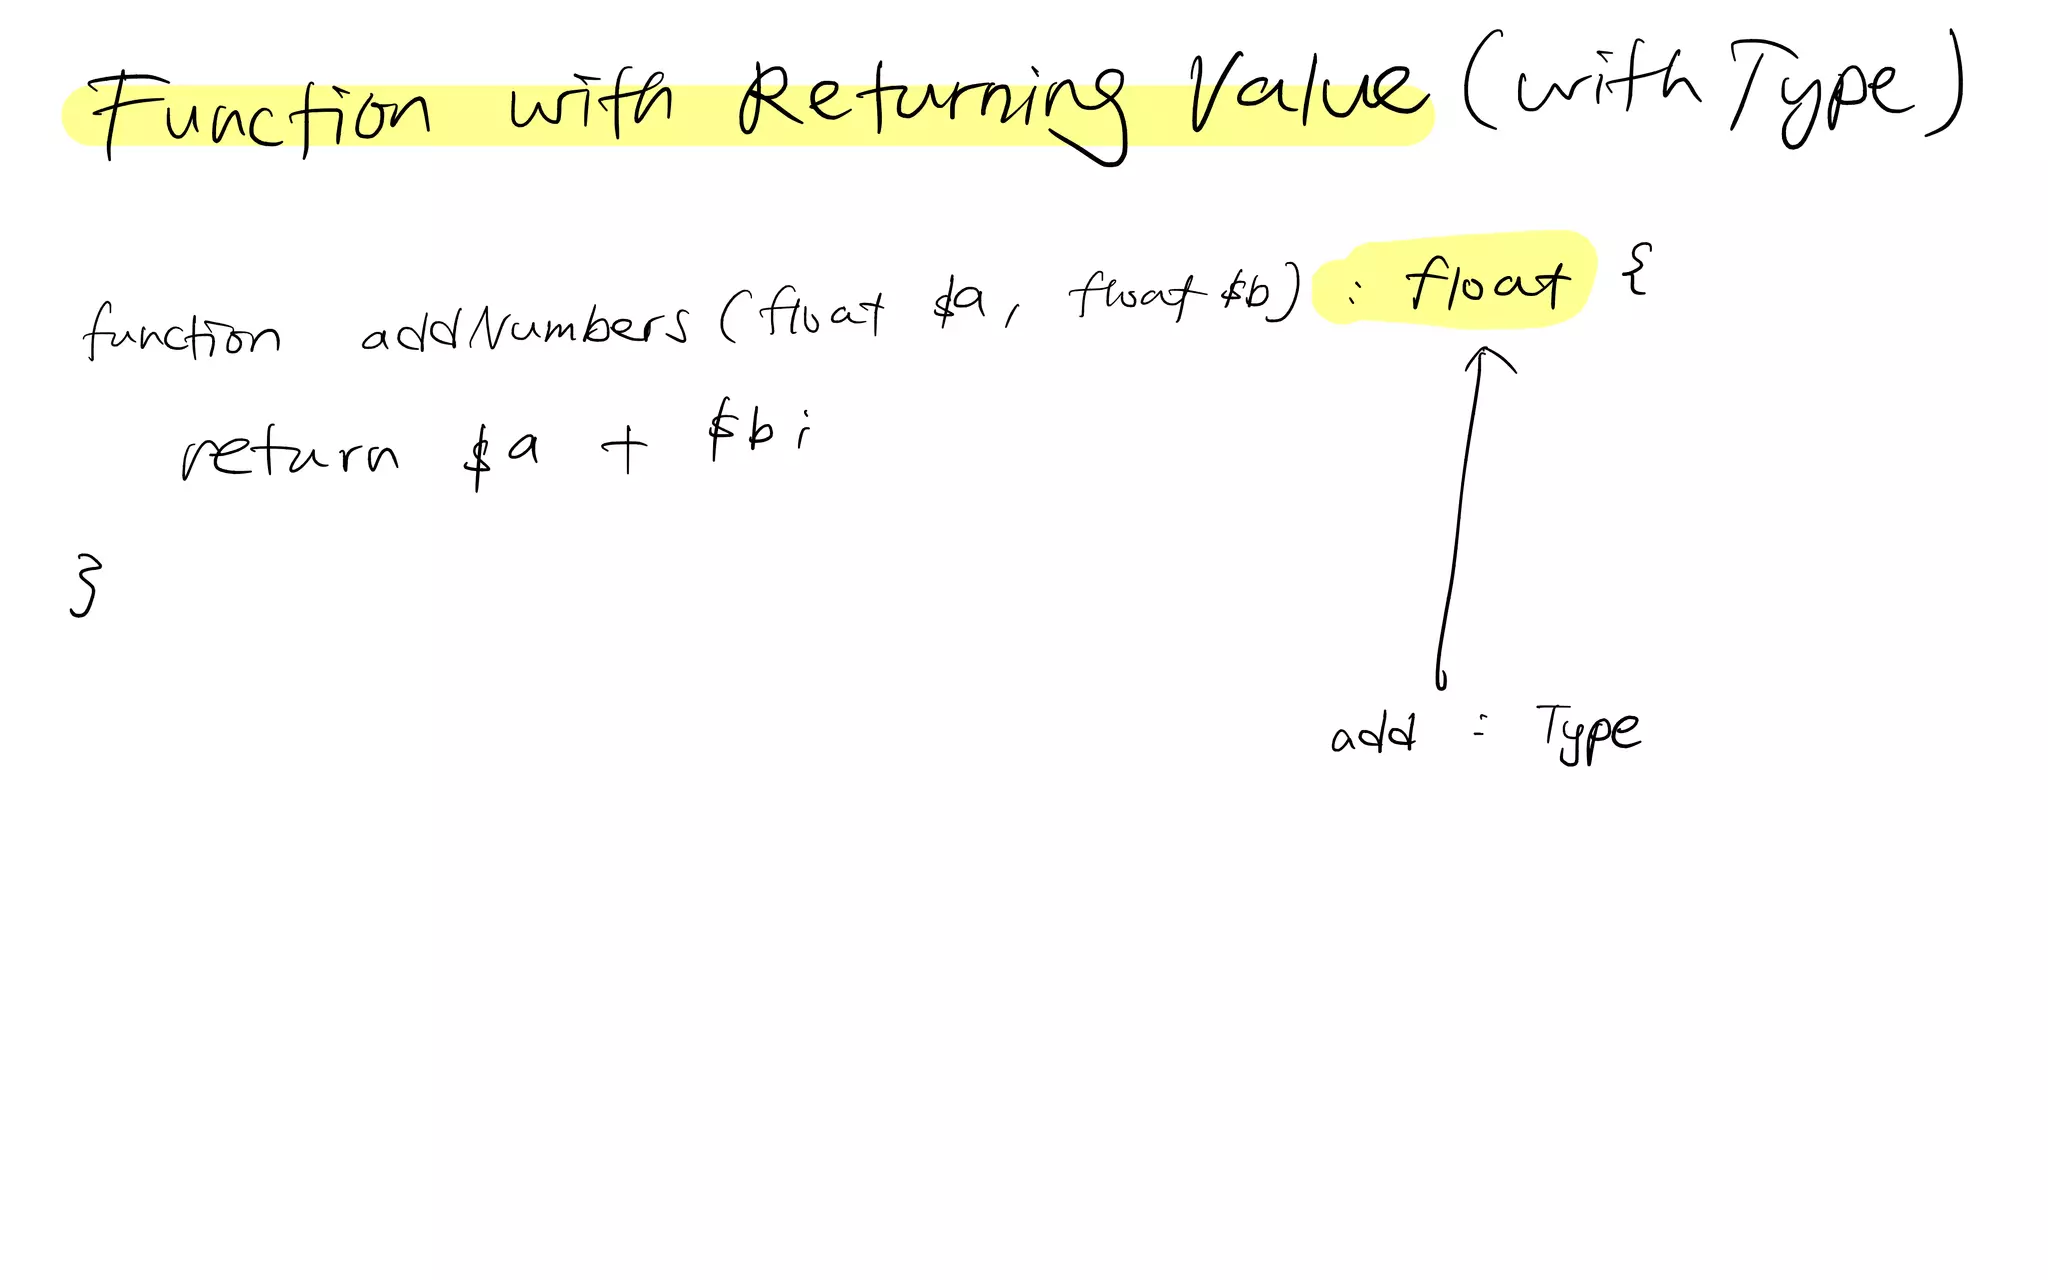 Function with Returning Value (with Type)
function addNumbers (float $a, float $b) : float {
return $a + $b;
}
add : Type